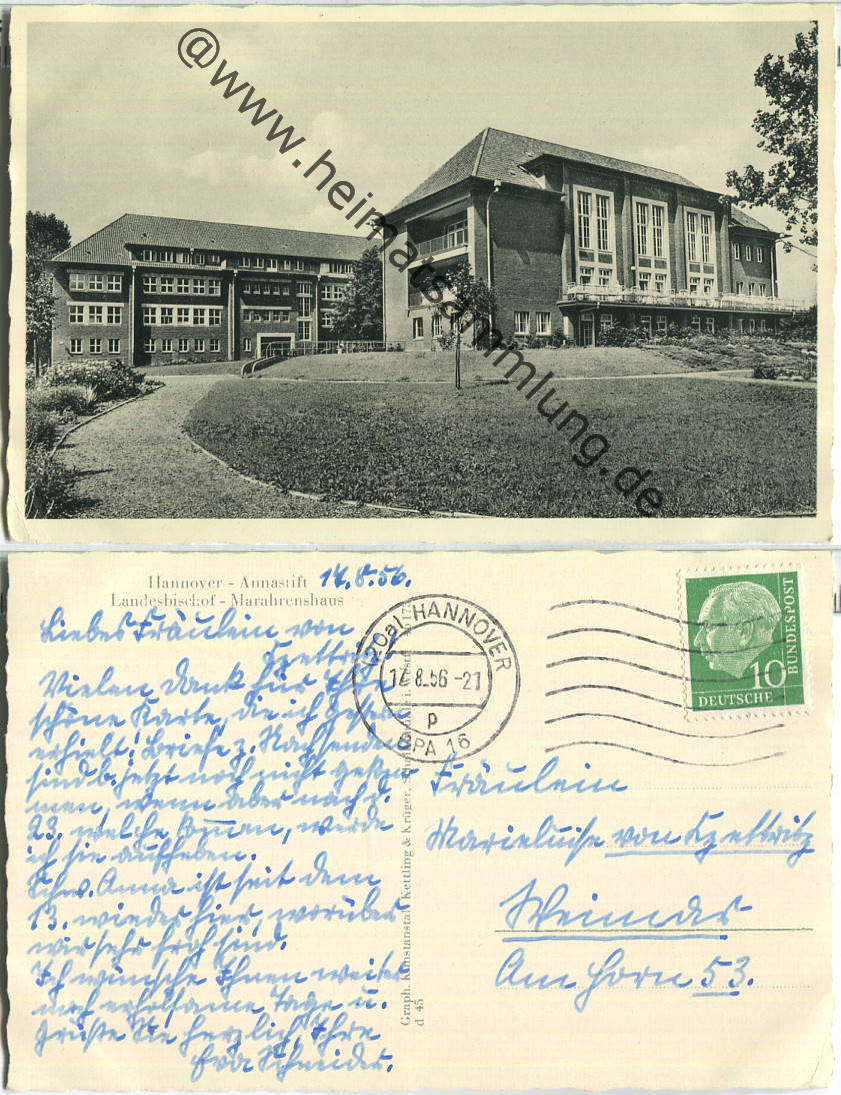 @www.heimatsammlung.de
Hannover - Annastift 17.8.56.
Landesbischof - Marahrenshaus
Liebes Fräulein von
Czettritz
Vielen Dank für Ihre
schöne Karte, die ich gestern
erhielt! Briefe z. Nachsenden
sind b. jetzt noch nicht gekom
men, wenn aber nach d.
23. welche kommen, werde
ich sie aufheben.
Schw. Anna ist seit dem
13. wieder hier, worüber
wir sehr froh sind.
Ich wünsche Ihnen weiter
noch erholsame Tage u.
grüße Sie herzlich, Ihre
Eva Schneider.
Graph. Kunstanstalt Kettling & Krüger,
d 45
(20a) HANNOVER
17.8.56-21
p
BPA 16
10
DEUTSCHE
BUNDESPOST
Fräulein
Marieluise von Czettritz
Weimar
Am Horn 53.